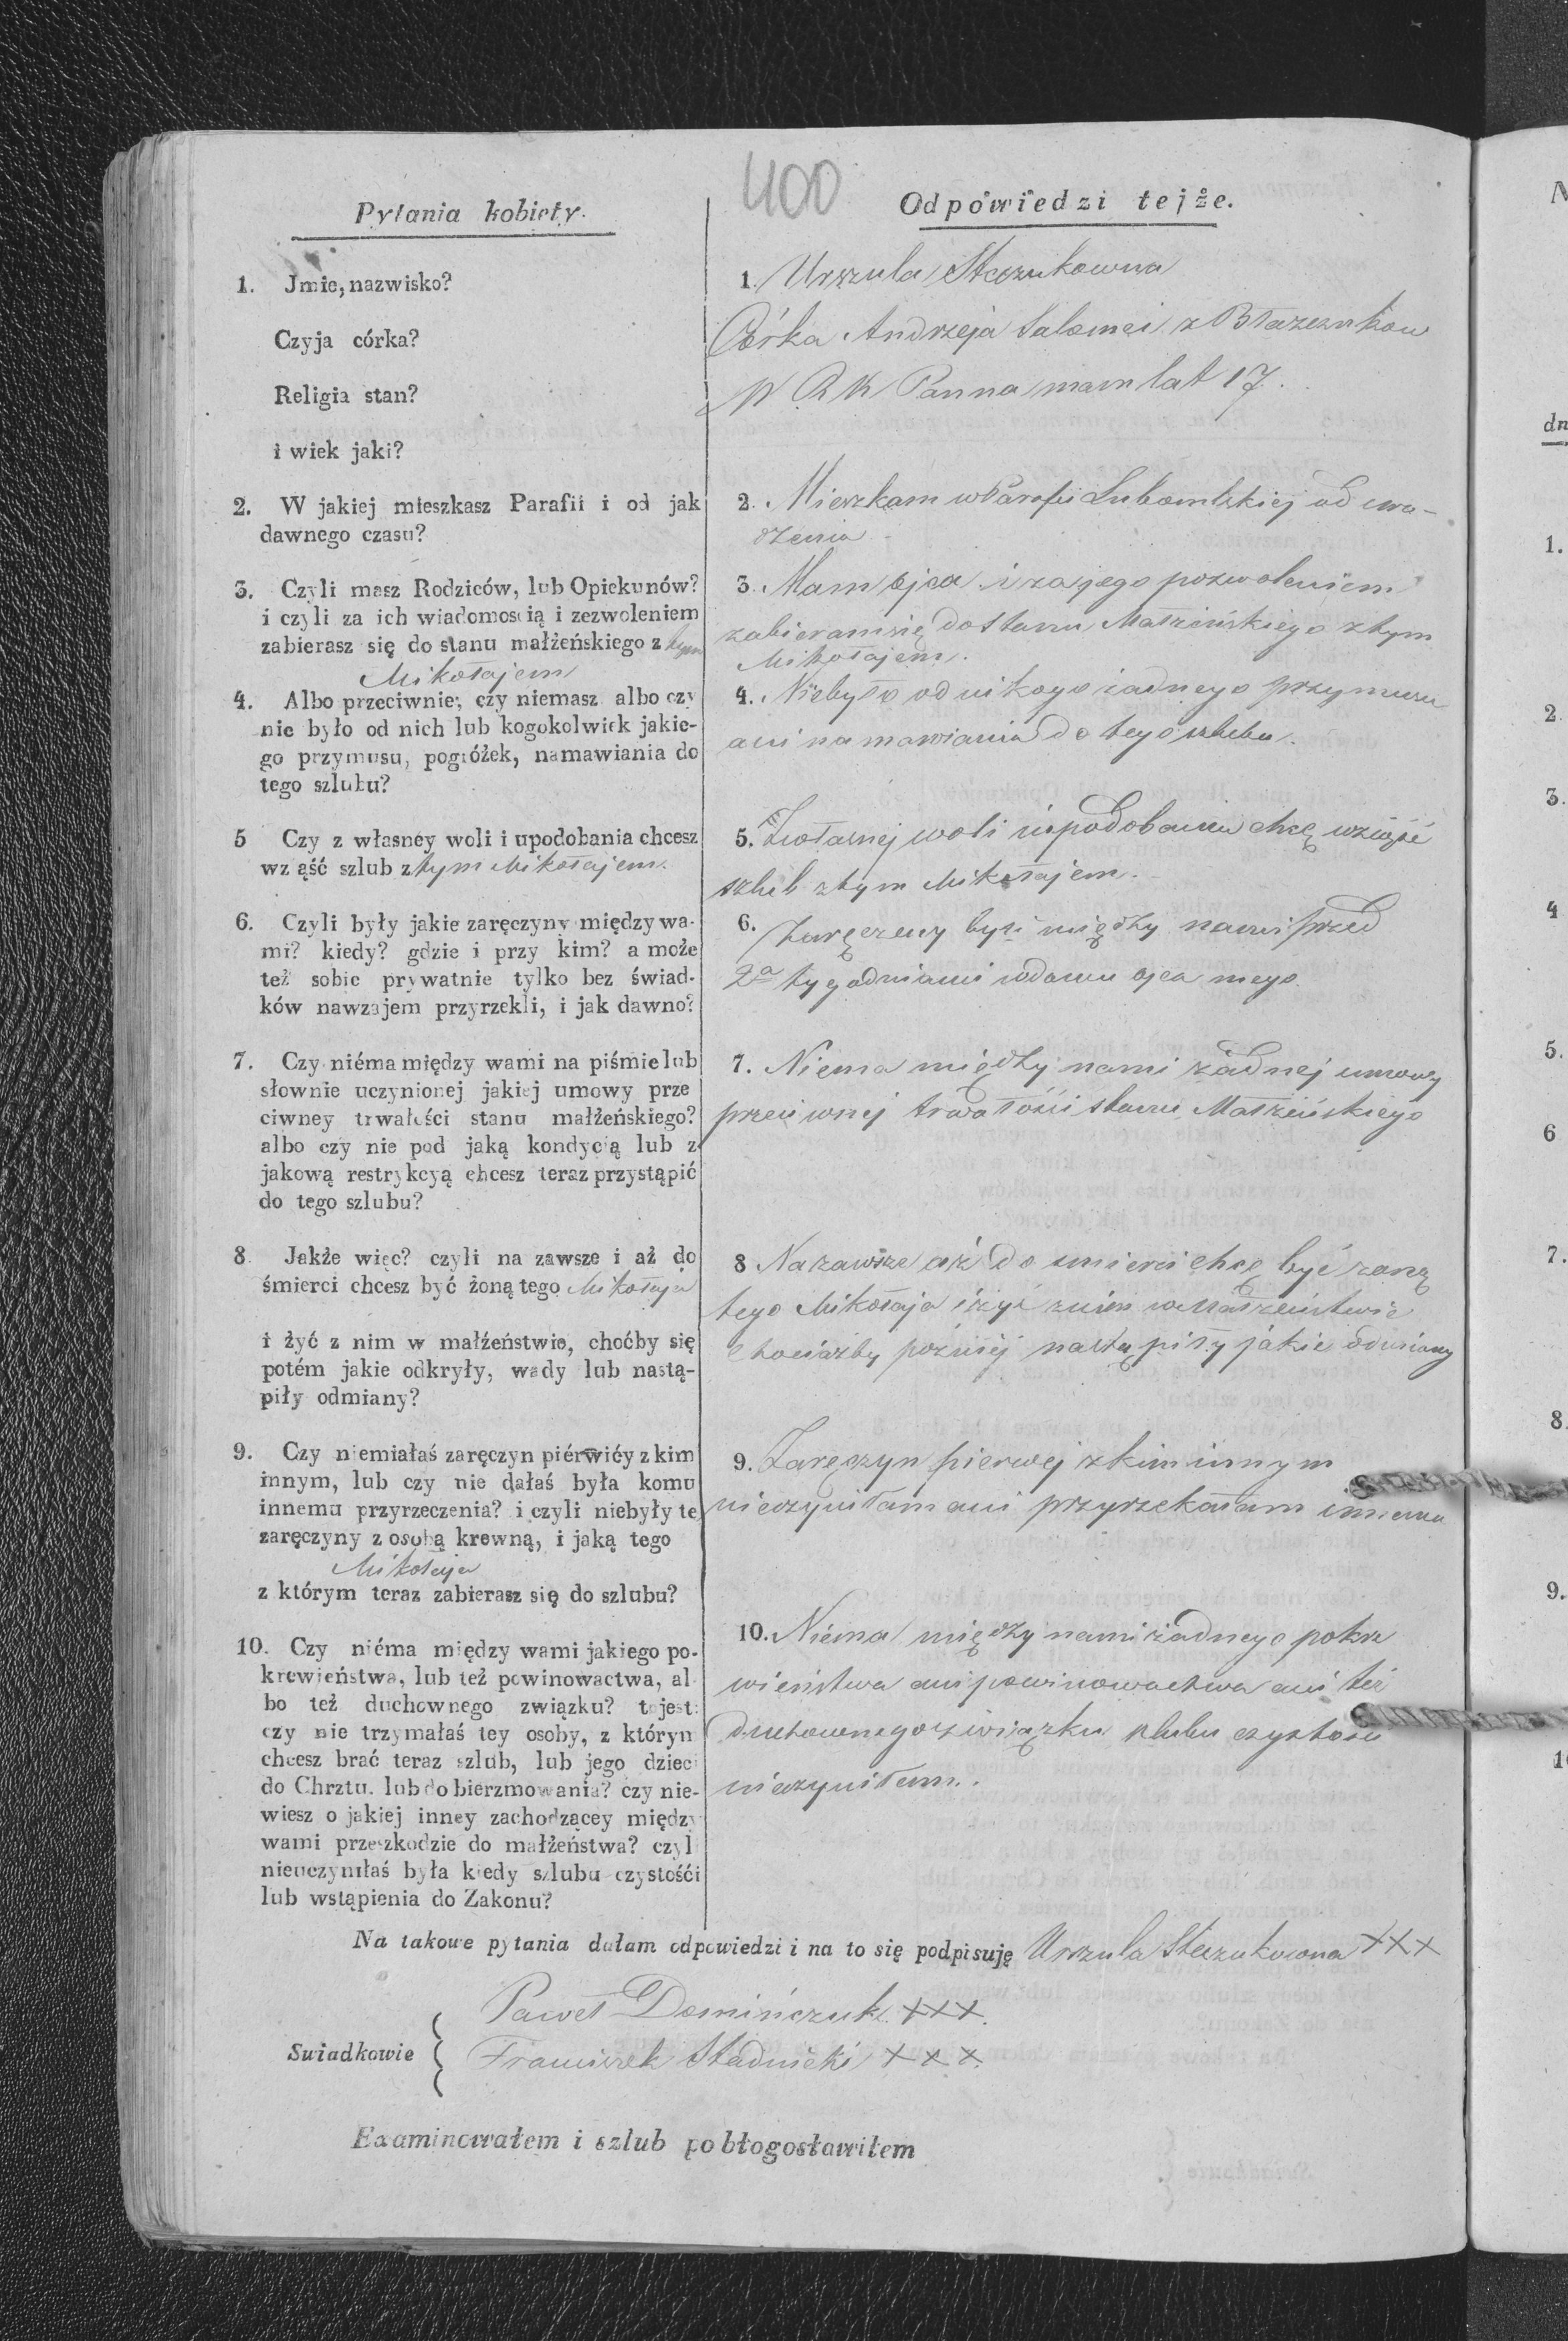 400
Pytania kobiety.
1. Jmie, nazwisko?
Czyja córka?
Religia stan?
i wiek jaki?
2. W jakiej mieszkasz Parafii i od jak
dawnego czasu?
3. Czyli masz Rodziców, lub Opiekunów?
i czyli za ich wiadomością i zezwoleniem
zabierasz się do stanu małżeńskiego z tym
Mikołajem
4. Albo przeciwnie; czy niemasz albo czy
nie było od nich lub kogokolwiek jakie-
go przymusu, pogróżek, namawiania do
tego szlubu?
5 Czy z własney woli i upodobania chcesz
wz ąść szlub z tym Mikołajem.
6. Czyli były jakie zaręczyny między wa-
mi? kiedy? gdzie i przy kim? a może
też sobie prywatnie tylko bez świad-
ków nawzajem przyrzekli, i jak dawno?
7. Czy niéma między wami na piśmie lub
słownie uczynionej jakiej umowy prze
ciwney trwałości stanu małżeńskiego?
albo czy nie pod jaką kondycią lub z
jakową restrykcyą chcesz teraz przystąpić
do tego szlubu?
8. Jakże więc? czyli na zawsze i aż do
śmierci chcesz być żoną tego Mikołaja
i żyć z nim w małżeństwie, choćby się
potém jakie odkryły, wady lub nastą-
piły odmiany?
9. Czy niemiałaś zaręczyn piérwiéy z kim
innym, lub czy nie dałaś była komu
innemu przyrzeczenia? i czyli niebyły te
zaręczyny z osobą krewną, i jaką tego
Mikołaja
z którym teraz zabierasz się do szlubu?
10. Czy niéma między wami jakiego po-
krewieństwa, lub też powinowactwa, al
bo też duchownego związku? to jest:
czy nie trzymałaś tey osoby, z którym
chcesz brać teraz szlub, lub jego dzieci
do Chrztu. lub do bierzmowania? czy nie-
wiesz o jakiej inney zachodzącey między
wami przeszkodzie do małżeństwa? czyl
nieuczyniłaś była kiedy szlubu czystośći
lub wstąpienia do Zakonu?
Odpowiedzi tejże.
1. Urszula Steczukowna
Córka Andrzeja Salomei z Błazezukow
W R K Panna mam lat 17.
2. Mieszkam w Parafii Lubomlskiej od uro-
dzenia
3. Mam ojca i za jego pozwoleniem
zabieram się do stanu Małzeńskiego z tym
Mikołajem.
4. Niebyło od nikogo zadnego przymusu
ani namawiania do tego szlubu.
5. Z własnej woli i upodobania chcę wziąść
szlub z tym Mikołajem.
6. Zaręczeny byli między nami przed
2a tygodniami w domu ojca mego
7. Niema między nami żadnej umowy
przeciwnej trwałości stanu Małzeńskiego
8 Nazawsze aż do smierci chcę być zoną
tego Mikołaja i żyć z nim w Małzeństwie
chociażby pozniej nastąpiły jakie odmiany
9. Zaręczyn pierwej z kim innym
nieczyniłam ani przyrzekałam innemu
10. Niéma między nami żadnego pokre
wieństwa ani powinowactwa ani też
duchownego związku szlubu czystości
nieczyniłam.
Na takowe pytania dałam odpowiedzi i na to się podpisuję Urszula Steczukowna XXX
Paweł Domińczuk XXX.
Swiadkowie
Franciszek Stadnicki XXX.
Examinowałem i szlub pobłogosławiłem
N
dn
1.
2
3.
4
5.
6
7.
8.
9.
1